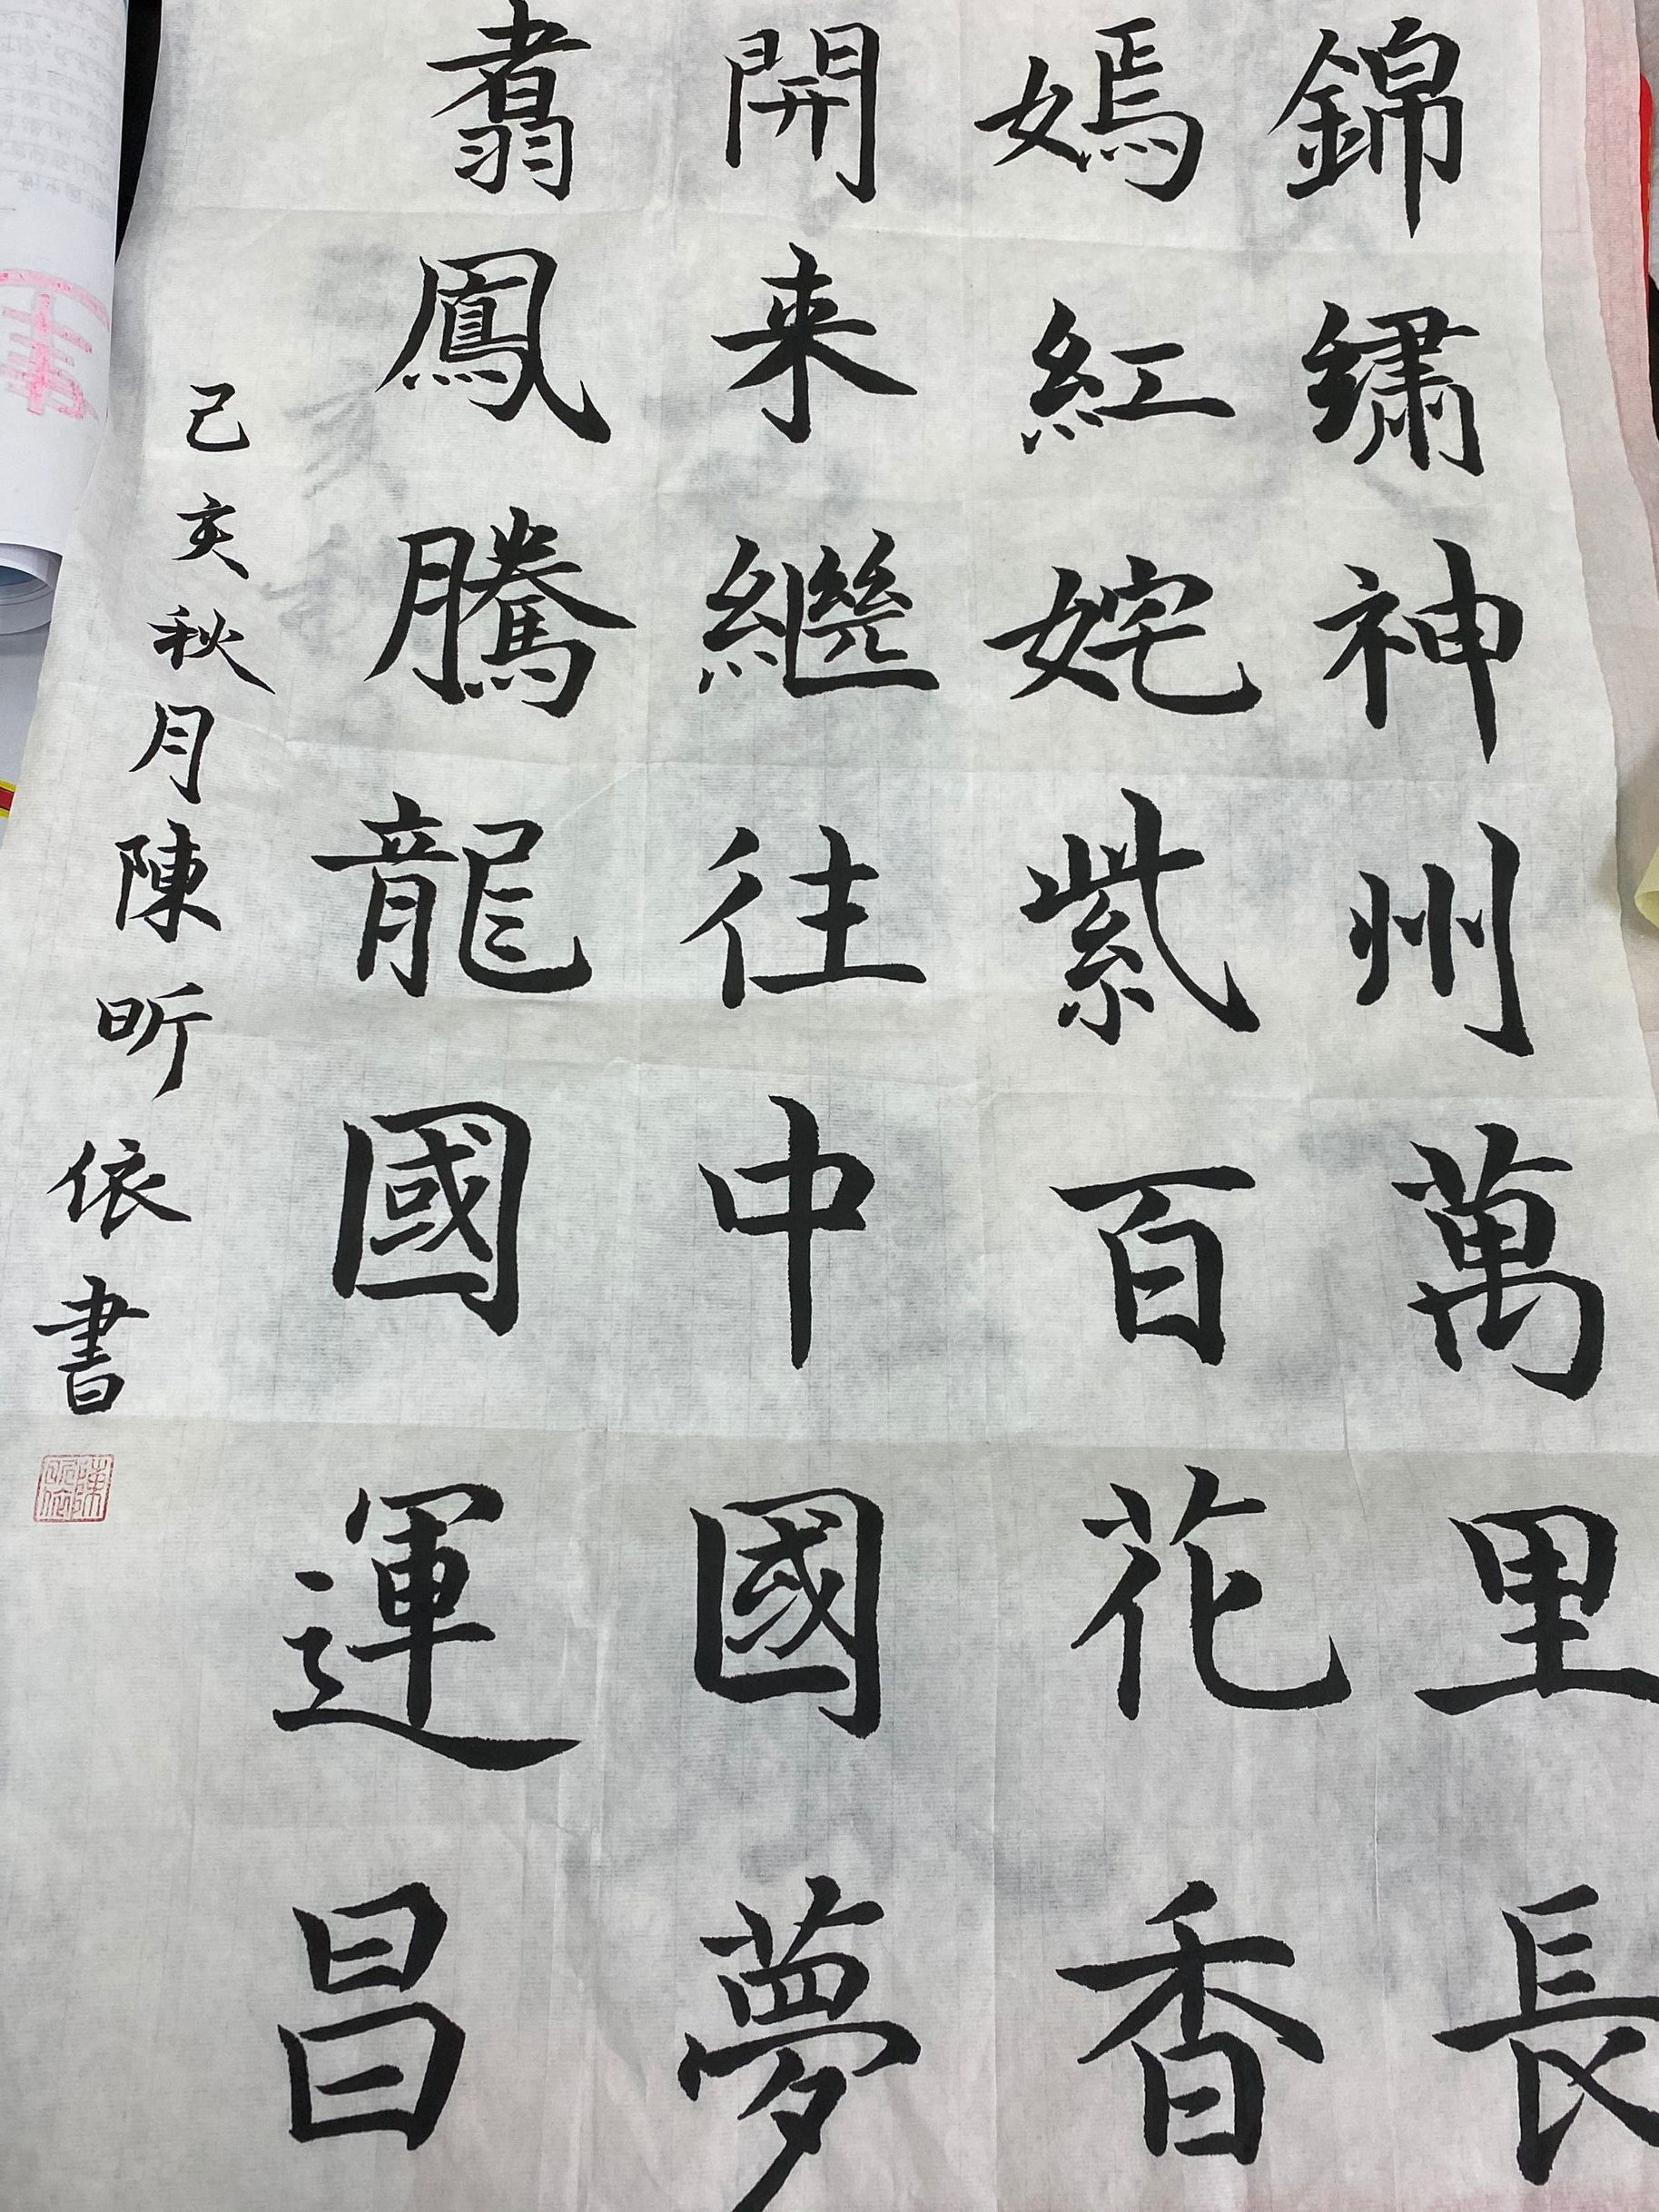 錦繡神州萬里長
嫣紅姹紫百花香
開来繼往中國夢
翥鳳騰龍國運昌
己亥秋月陳昕依書
陳昕依